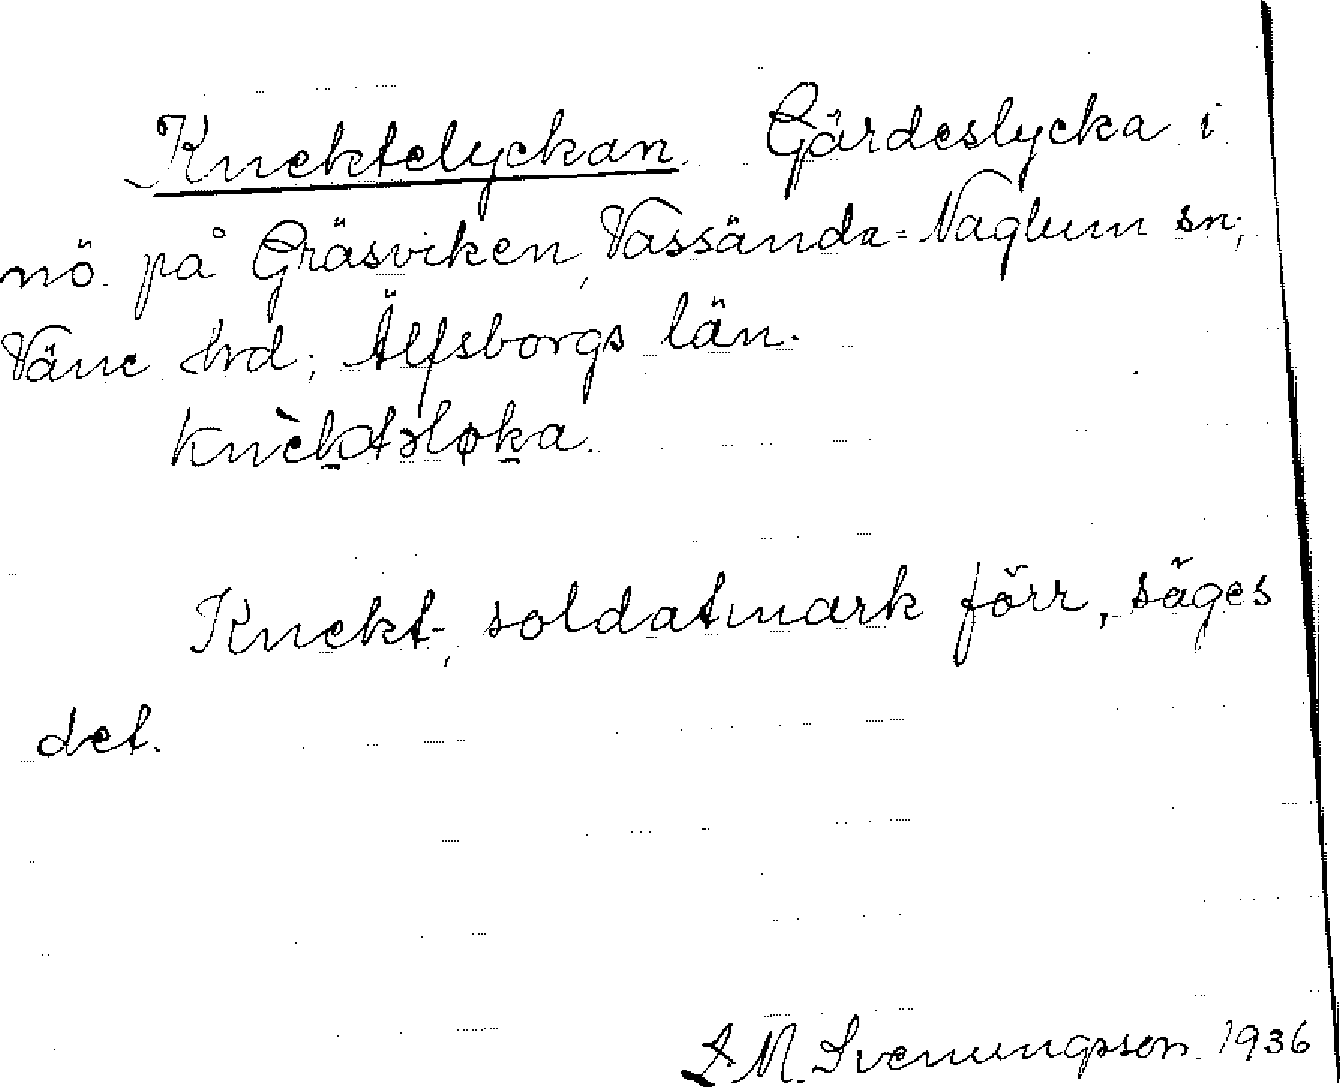 Knektelyckan. Gärdeslycka i
nö. på Gräsviken, Vassända-Naglum sn;
Väne hrd; Älfsborgs län.
knὲktəløka.
Knekt-, soldatmark förr, säges
det.
L. M. Svenungsson 1936